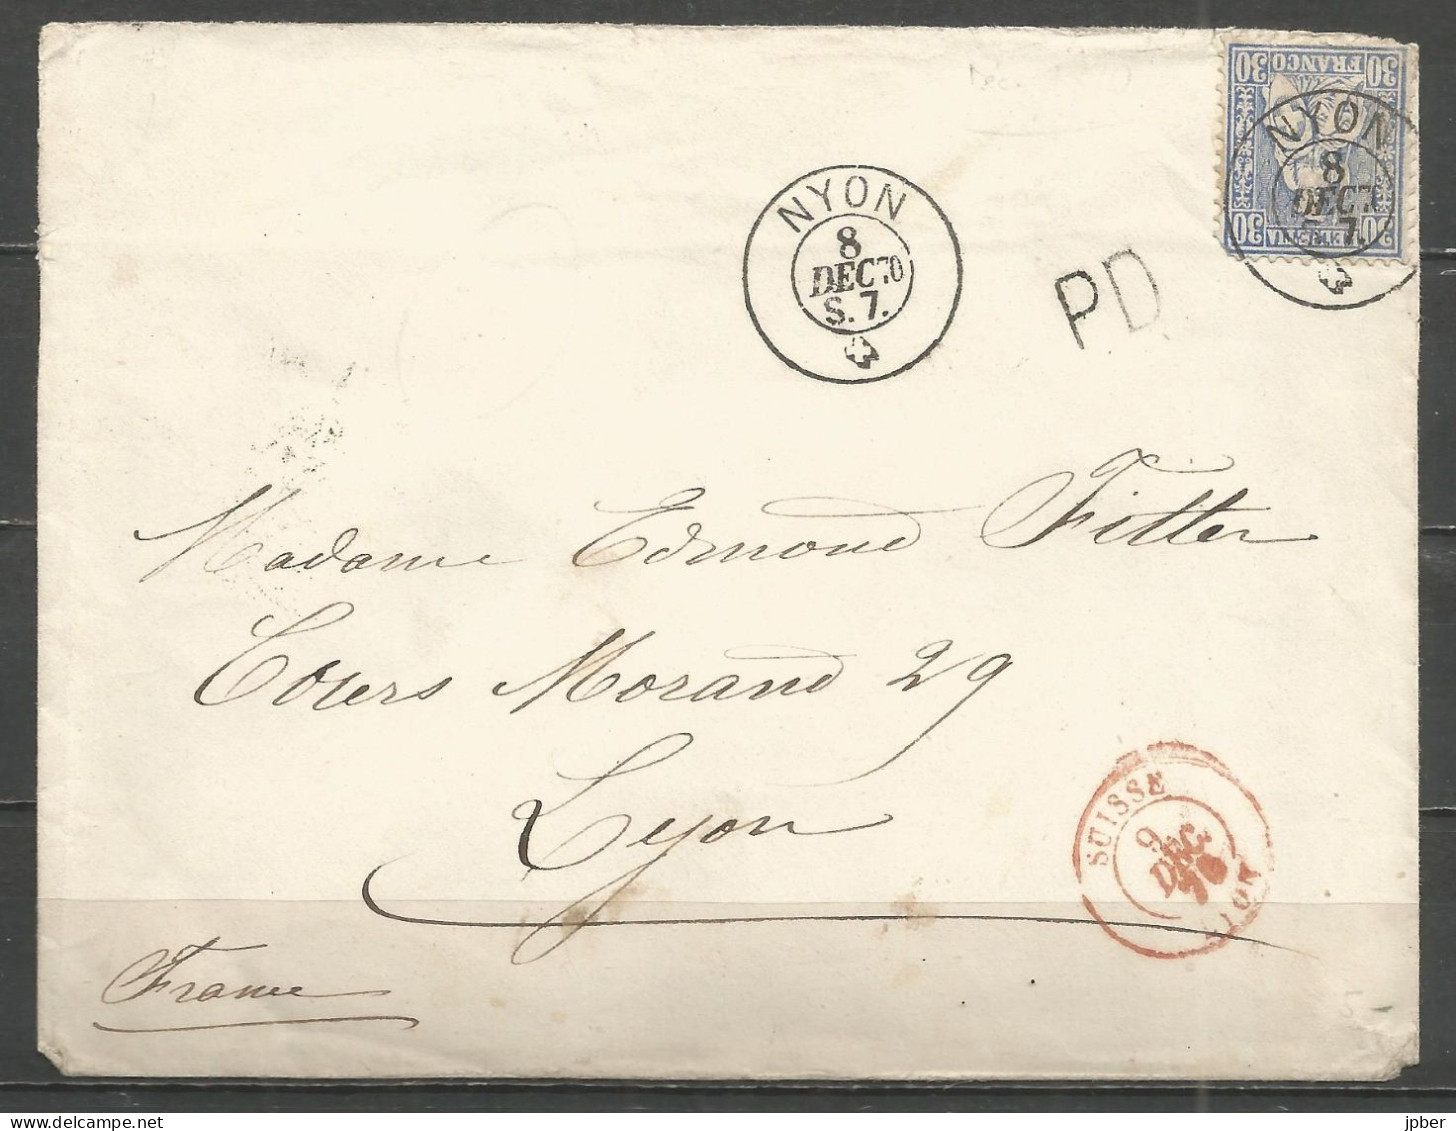 30 FRANCO 30
30 HELVETIA 30
NYON
8
DEC 70
S. 7.
NYON
8
DEC 70
S. 7.
PD
Madame Edmond Fitler
Cours Morand 29
Lyon
France
SUISSE
9
DEC.
70
LYON
5
jpber